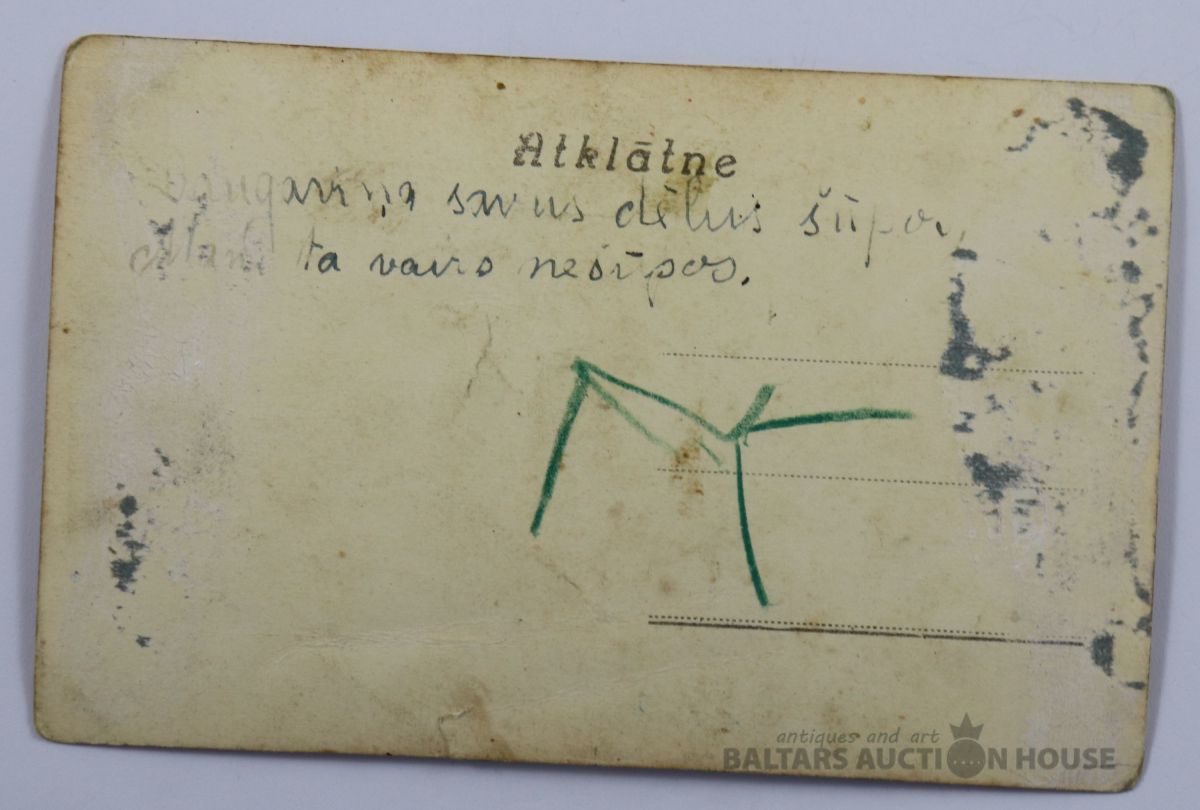 Atklātne
Daugaviņa savus dēlus šūpo,
Mani ta vairs nešūpos.
antiques and art
BALTARS AUCTION HOUSE